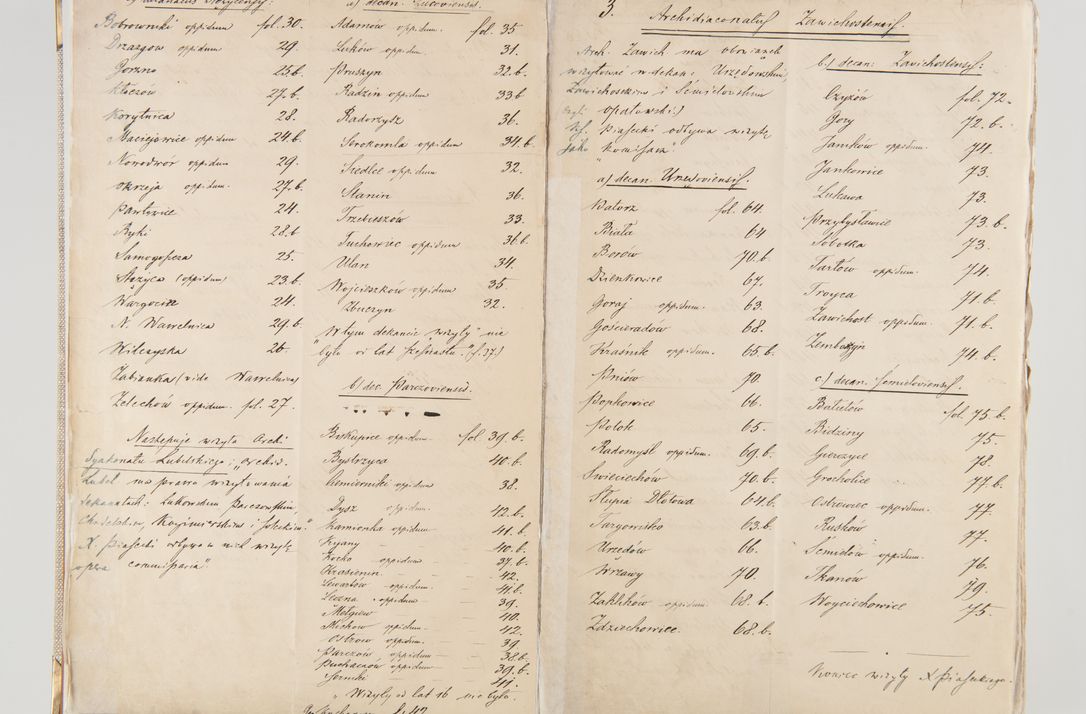 a) decan. Lucoviensis.
Bobrowniki oppidum fol. 30.
Drazgow oppidum 29.
Gorzno 25.b.
Kloczów 27.b.
Korytnica 28.
Maciejowice oppidum 24.b.
Nowodwór oppidum 29.
Okrzeja oppidum. 27.b.
Pawłowice 24.
Ryki 28.b
Samogosza 25.
Stężyca (oppidum 23.b.
Wargocin 24.
N. Wawelnica 29.b.
Wilczyska 26.
Zabianka (vide Wawelnica)
Żelechów oppidum. fol. 27.
Następuje wizyta Archi
dyakonatu Lubelskiego; "Archid.
Lubel ma prawo wizytowania
dekanatach: Łukowskim Parczowskim,
Chodelskim, Kazimierskim i
X. Piasecki odbywa w nich wizytę
commissaria".
Adamów oppidum. fol. 35
Łuków oppidum. 31.
Pruszyn 32.b.
Radzin oppidum 33b
Radoryż 36.
Serokomla oppidum 34.b.
Siedlce oppidum 32.
Stanin 36.
Trzebieszów 33.
Tuchowicz oppidum 36.b.
Ulan 34.
Wojcieszków oppidum 35.
Zbuczyn 32.
"W tym dekanacie wizyty nie
było od lat (f. 37.)
b) dec. Parczoviensis.
Biskupice oppidum fol. 39.b.
Bystrzyca 40.b.
Czemierniki oppidum 38.
Dysz oppidum. 42.b.
Kamionka oppidum — 41.b.
Kijany — 40.b.
Kocko oppidum — 37.b.
Krasienin — 42.
Lewartów oppidum. — 41b.
Łęczna oppidum — 39.
Mełgiew — 40.
oppidum. — 42.
Ostrów oppidum. — 39
Parczów oppidum — 38.b.
Puchaczów oppidum — 39.b.
Serniki — 41.
"Wizyty od lat 16 nie było.
3. Archidiaconatus Zawichostensis.
Arch. Zawich. ma obowiązek
wizytować w dekan: Urzędowskim,
Zawichoskim i Semielowskim
(czyli Opatowski.)
X. Piasecki odbywa wizytę
jako "Komisarz"
a) decan. Urzedoviensis.
Batorz fol. 64.
Biała 64
Borów 70.b.
Dzierzkowice 67.
Goraj oppidum. 63.
Gościeradów 68.
Kraśnik oppidum. 65.b.
Pniów 70.
Popkowice 66.
Potok 65.
Radomyśl oppidum. 69.b.
Świeciechów 70.b.
Słupia Dłotowa 64.b.
Targowisko 63.b.
Urzędów 66.
Wrzawy 70.
Zaklików oppidum 68.b.
Zdziechowice 68.b.
b) decan: Zavichostensis:
Czyżów fol. 72.
Góry 72.b.
Janików oppidum 74.
Jankowice 73.
Łukawa 73.
Przybysławice 73.b.
Sobotka 73.
Tarłów oppidum. 74.
Troyca 71.b.
Zawichost oppidum. 71.b.
74.b.
c) decan. Semieloviensis.
Baltów fol. 75.b.
Bidziny 75.
Gierczyce 78.
Grocholice 77.b.
Ostrowiec oppidum. 77.
Ruszków 77.
Semielów oppidum. 76.
Tkanów 79.
Woyciechowice 75.
Koniec wizyty X. Piaseckiego.